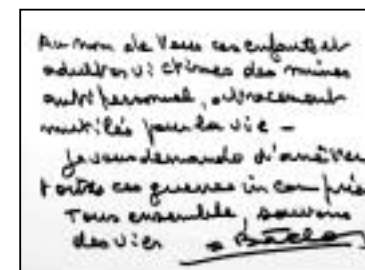 Au nom de tous ces enfants et
adultes victimes des mines
anti personnel, atrocement
mutilés pour la vie -
je vous demande d'arrêter
toutes ces guerres
Tous ensemble, sauvons
des vies